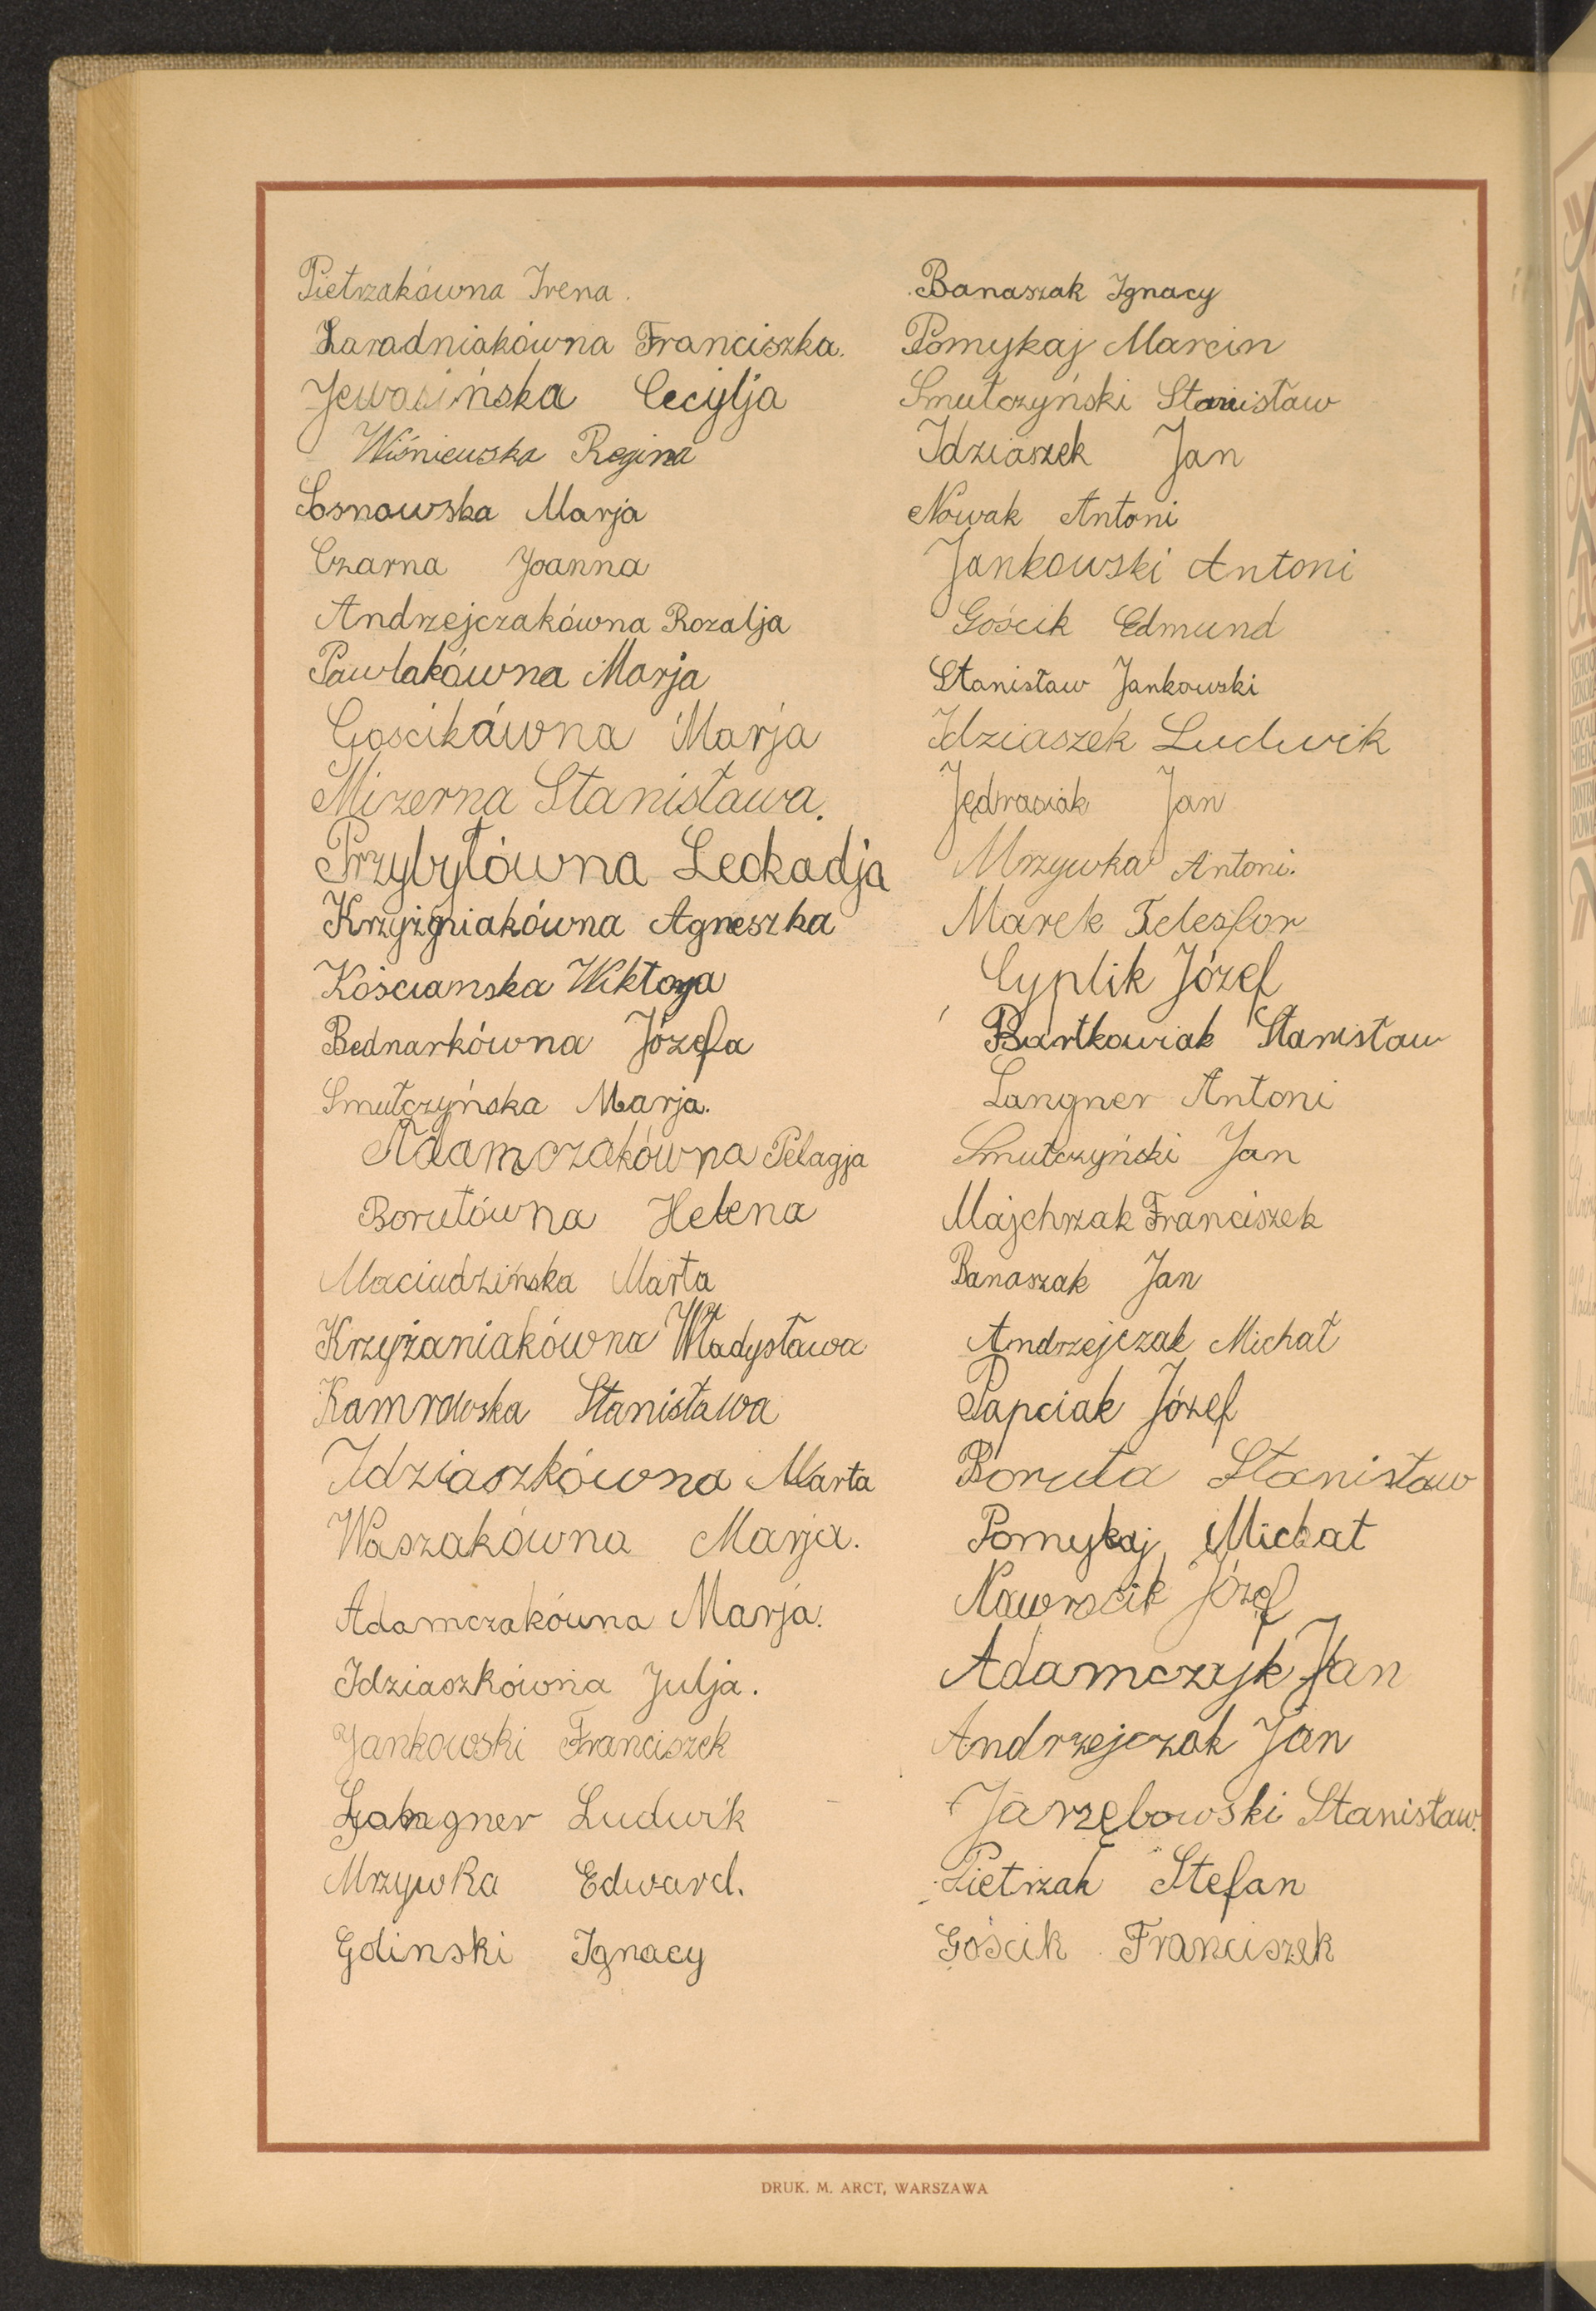 Pietrzakówna Irena.
Zaradniakówna Franciszka.
Jewasińska Cecylja
Wiśniewska Regina
Sosnowska Marja
Czarna Joanna
Andrzejczakówna Rozalja
Pawlakówna Marja
Gościkówna Marja
Mizerna Stanisława.
Przybyłówna Leokadja
Krzyżaniakówna Agnieszka
Kościamska Wiktorja
Bednarkówna Józefa
Smutczyńska Marja.
Adamczakówna Pelagja
Borutówna Helena
Maciudzińska Marta
Krzyżaniakówna Władysława
Kamrowska Stanisława
Idziaszkówna Marta
Waszakówna Marja.
Adamczakówna Marja.
Idziaszkówna Julja.
Jankowski Franciszek
Langner Ludwik
Mrzywka Edward.
Golinski Ignacy
Banaszak Ignacy
Pomykaj Marcin
Smutczyński Stanisław
Idziaszek Jan
Nowak Antoni
Jankowski Antoni
Gościk Edmund
Stanisław Jankowski
Idziaszek Ludwik
Jędrasiak Jan
Mrzywka Antoni.
Marek Telesfor
Cyplik Józef
Bartkowiak Stanisław
Langner Antoni
Smutczyński Jan
Majchrzak Franciszek
Banaszak Jan
Andrzejczak Michał
Papciak Józef
Boruta Stanisław
Pomykaj Michał
Nawrocik Józef
Adamczyk Jan
Andrzejczak Jan
Jarzębowski Stanisław.
Pietrzak Stefan
Gościk Franciszek
DRUK. M. ARCT, WARSZAWA